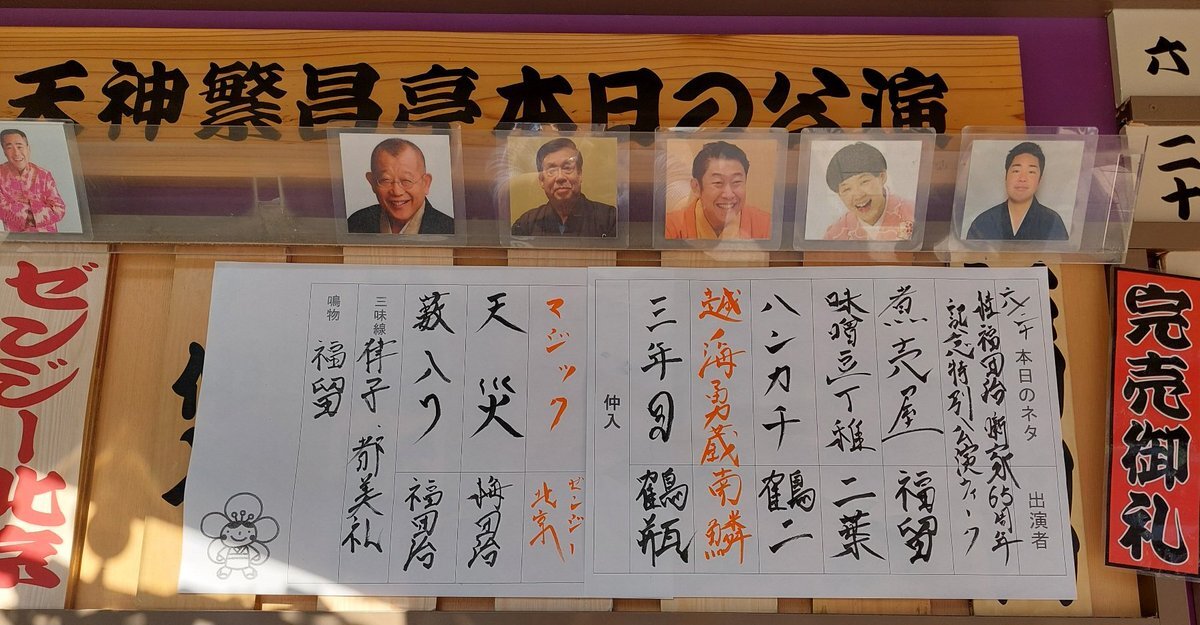 天神繁昌亭本日の公演
六
二十
完売御礼
六/二十 本日のネタ 出演者
桂福団治 噺家65周年
記念特別公演ウィーク
煮売屋 福留
味噌豆丁稚 二葉
ハンカチ 鶴二
越ノ海勇蔵 南鱗
三年目 鶴瓶
仲入
マジック ゼンジー北京
天災 梅団治
藪入り 福団治
三味線 律子、都美礼
鳴物 福留
ゼンジー北京